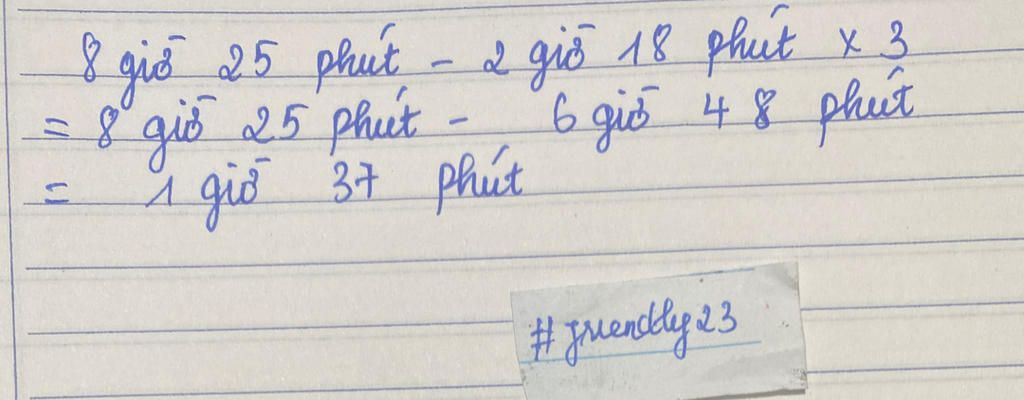 8 giờ 25 phút - 2 giờ 18 phút x 3
= 8 giờ 25 phút - 6 giờ 48 phút
= 1 giờ 37 phút
# friendly23